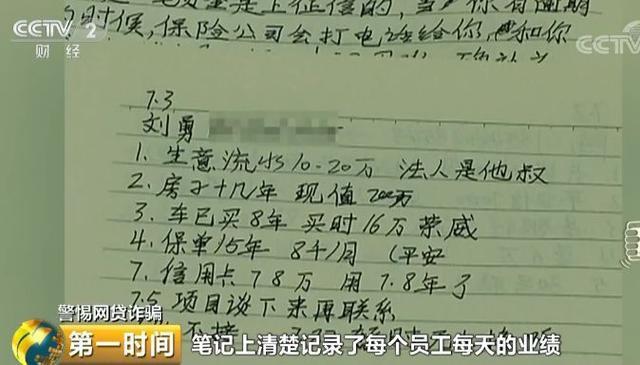 CCTV 2
财 经
是上征信的,当你有逾期
时候,保险公司会打电话给你,和你
7.3
刘勇
1. 生意流水10-20万 法人是他叔
2. 房子十几年 现值200万
3. 车已买8年 买时16万 荣威
4. 保单15年 8千/月 (平安
7. 信用卡 78万 用7.8年了
7.5 项目谈下来再联系
不接
警惕网贷诈骗
第一时间
笔记上清楚记录了每个员工每天的业绩